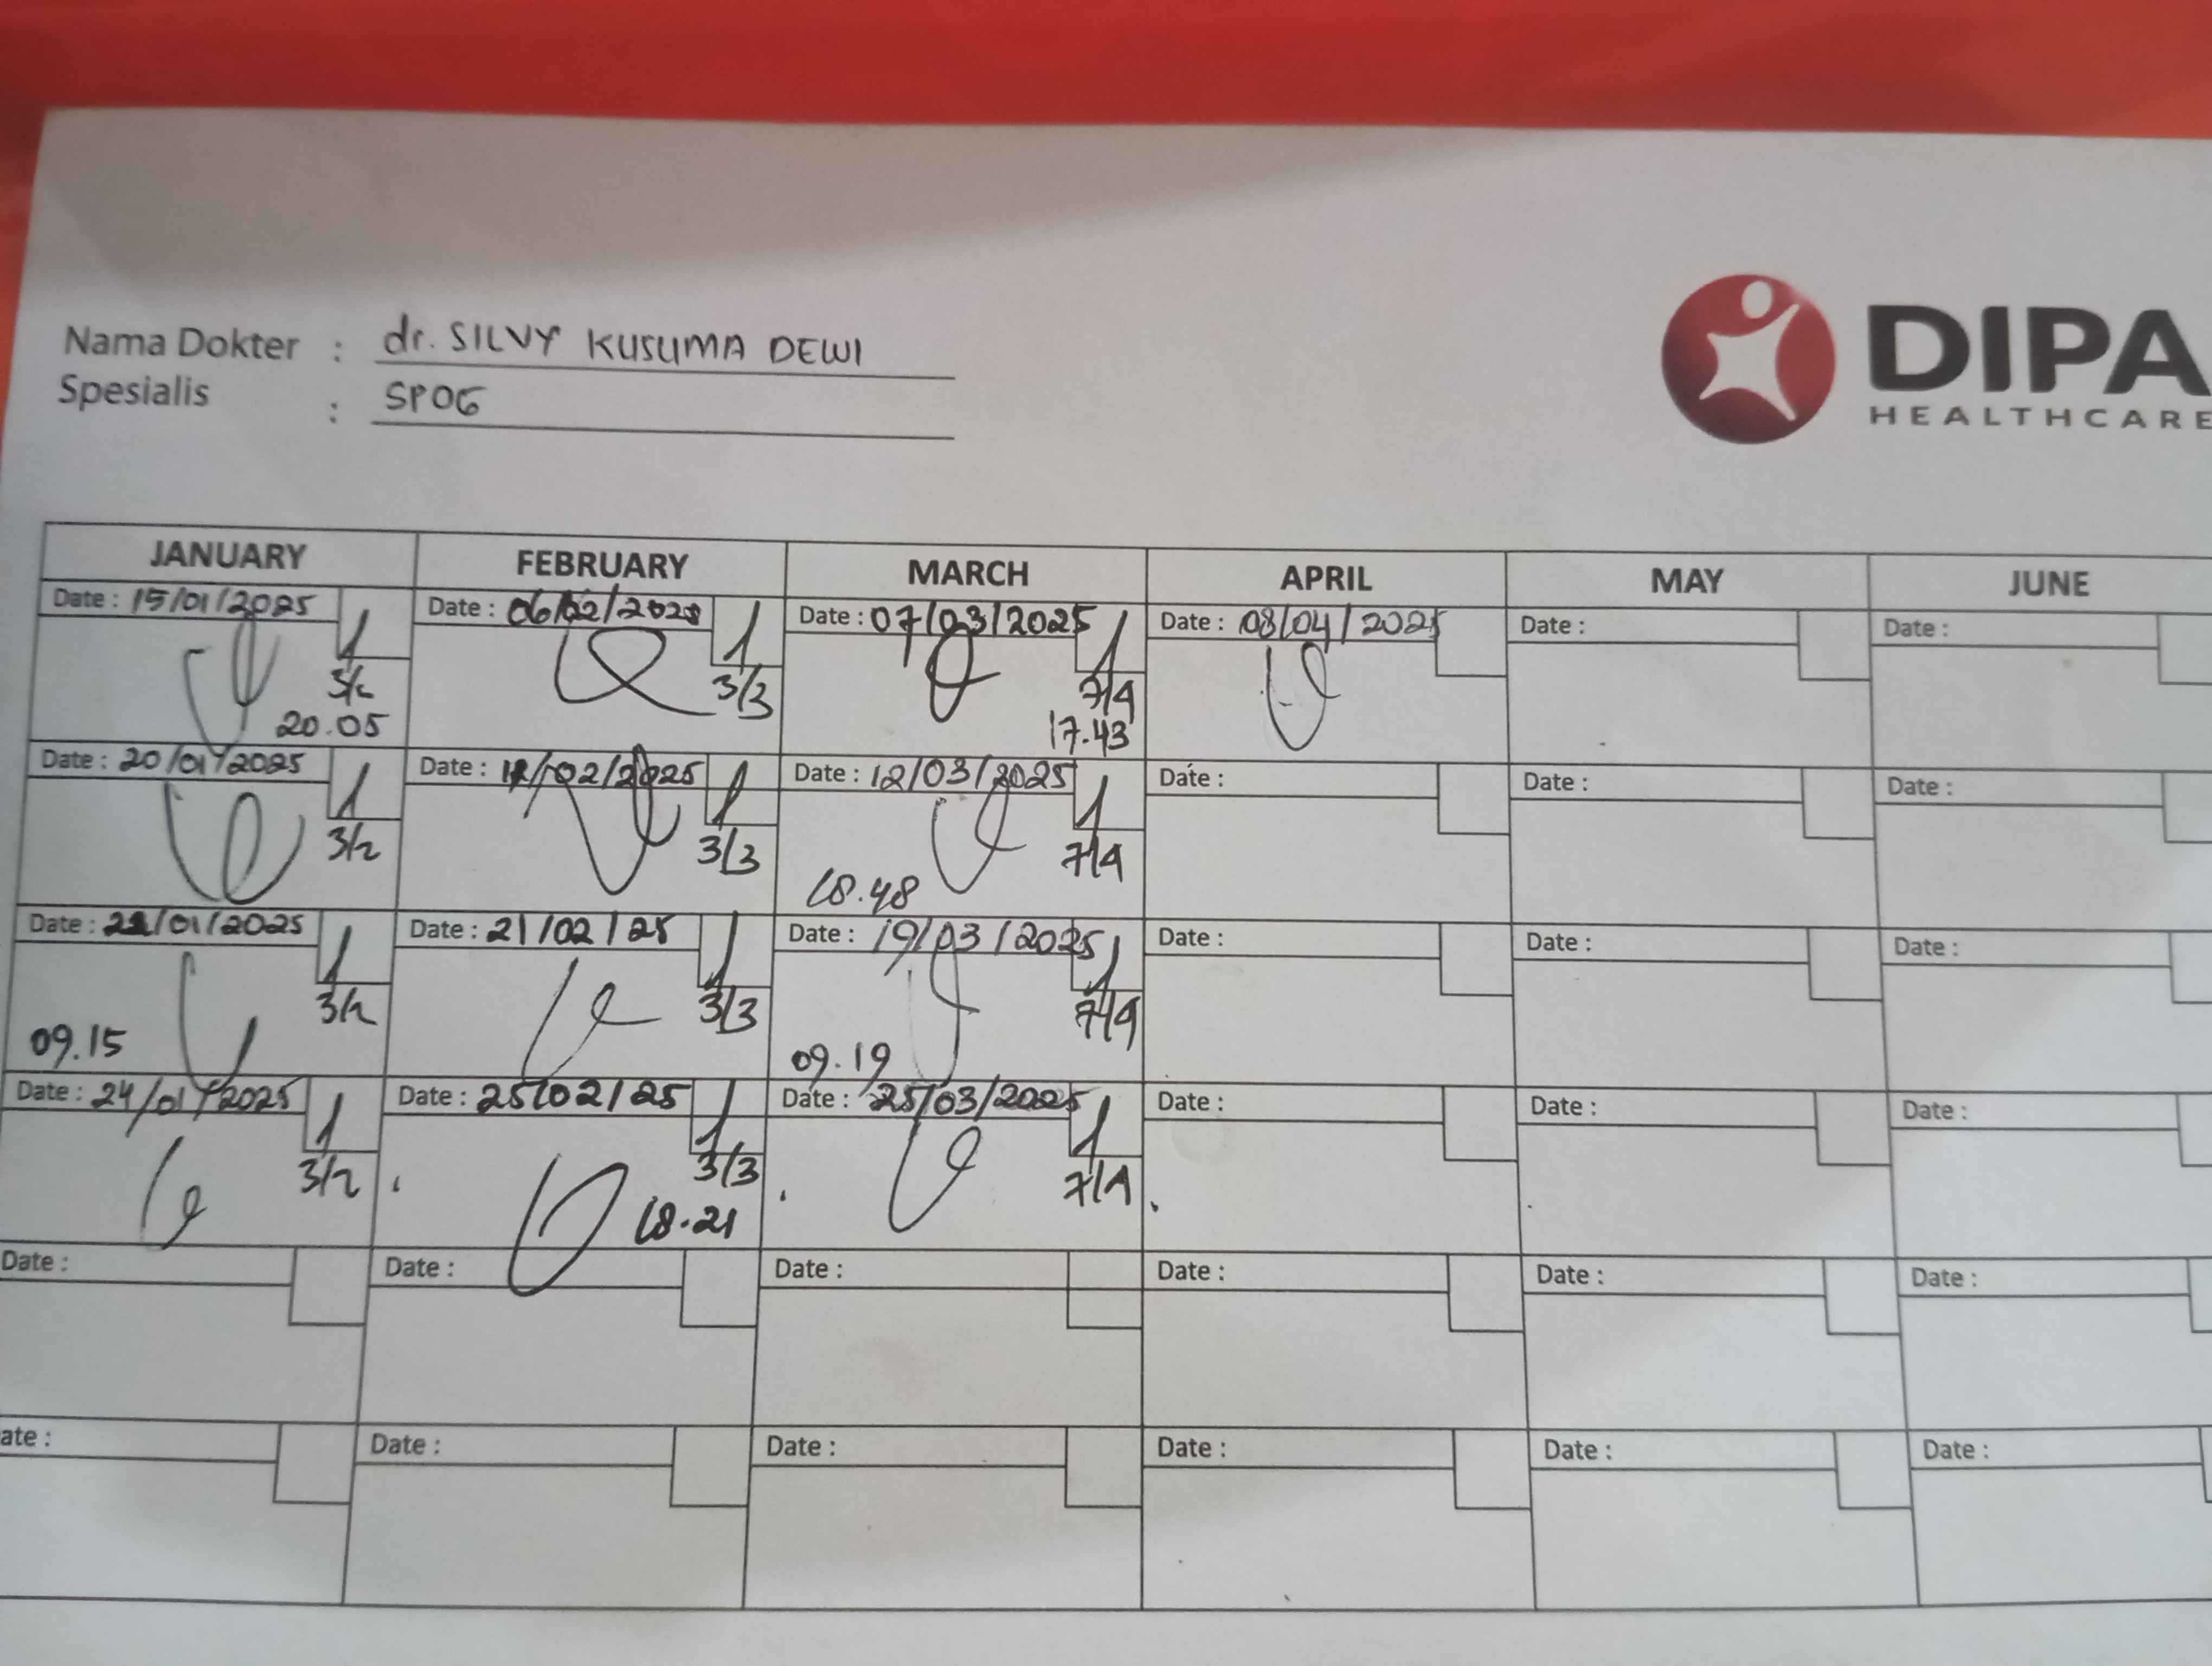 Nama Dokter : dr. SILVY KUSUMA DEWI
Spesialis : SPOG
DIPA
HEALTHCARE
JANUARY FEBRUARY MARCH APRIL MAY JUNE
Date : 15/01/2025 Date : 06/02/2025 Date : 07/03/2025 Date : 08/04/2025 Date : Date :
3/2 3/3 7/4
20.05 17.43
Date : 20/01/2025 Date : 12/02/2025 Date : 12/03/2025 Date : Date : Date :
3/2 3/3 7/4
18.48
Date : /01/2025 Date : 21/02/25 Date : 19/03/2025 Date : Date : Date :
3/2 3/3 7/4
09.15 09.19
Date : 24/01/2025 Date : 25/02/25 Date : 25/03/2025 Date : Date : Date :
3/2 3/3 7/4
18.21
Date : Date : Date : Date : Date : Date :
ate : Date : Date : Date : Date : Date :